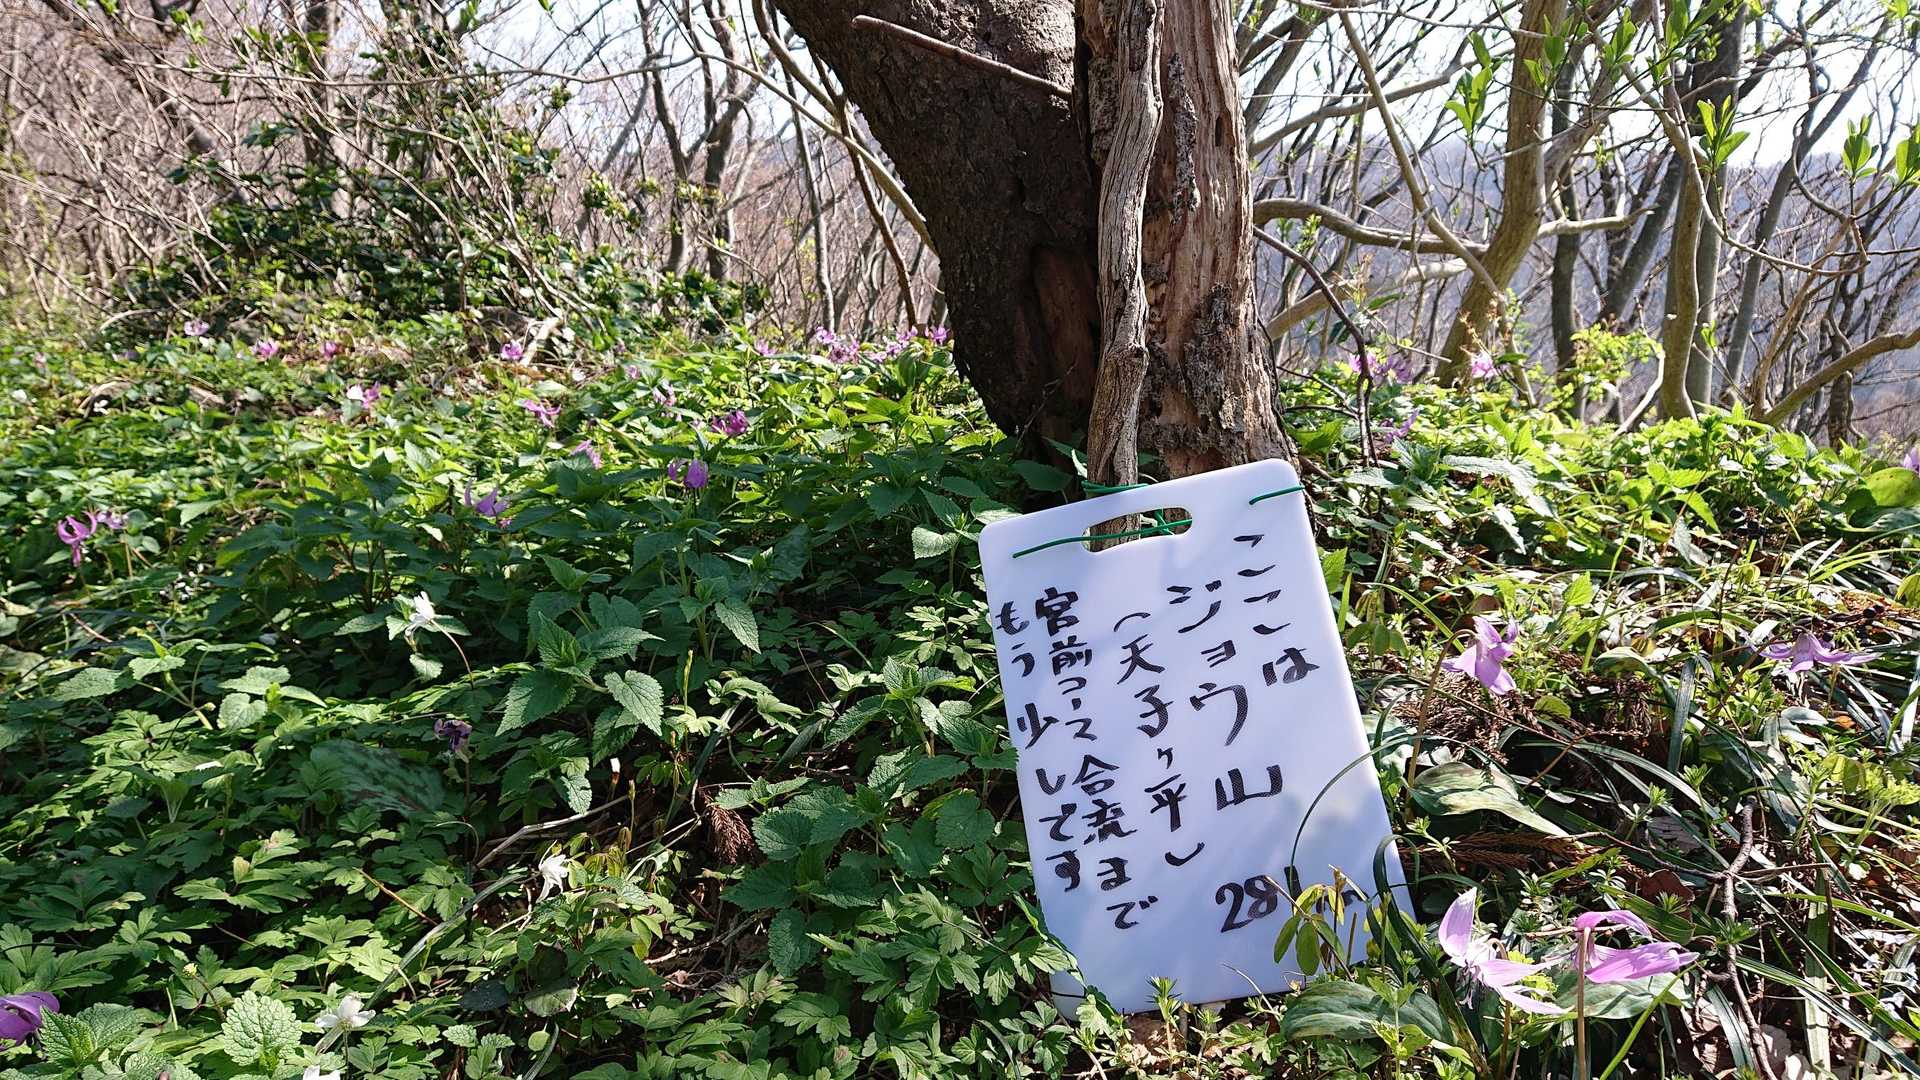 ここは
ジョウ山 28
(天子ヶ平)
宮前コース合流まで
もう少しです